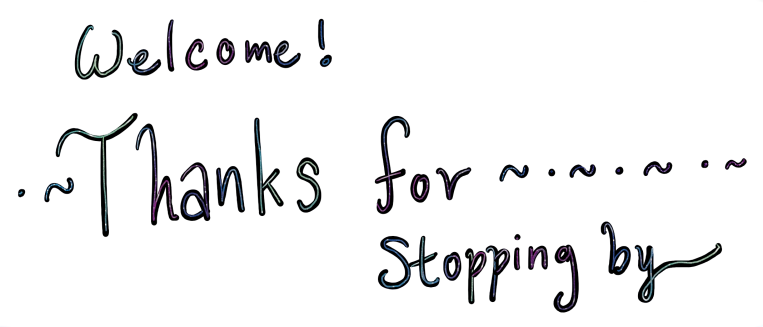 Welcome!
·~Thanks for ~·~·~·~
Stopping by